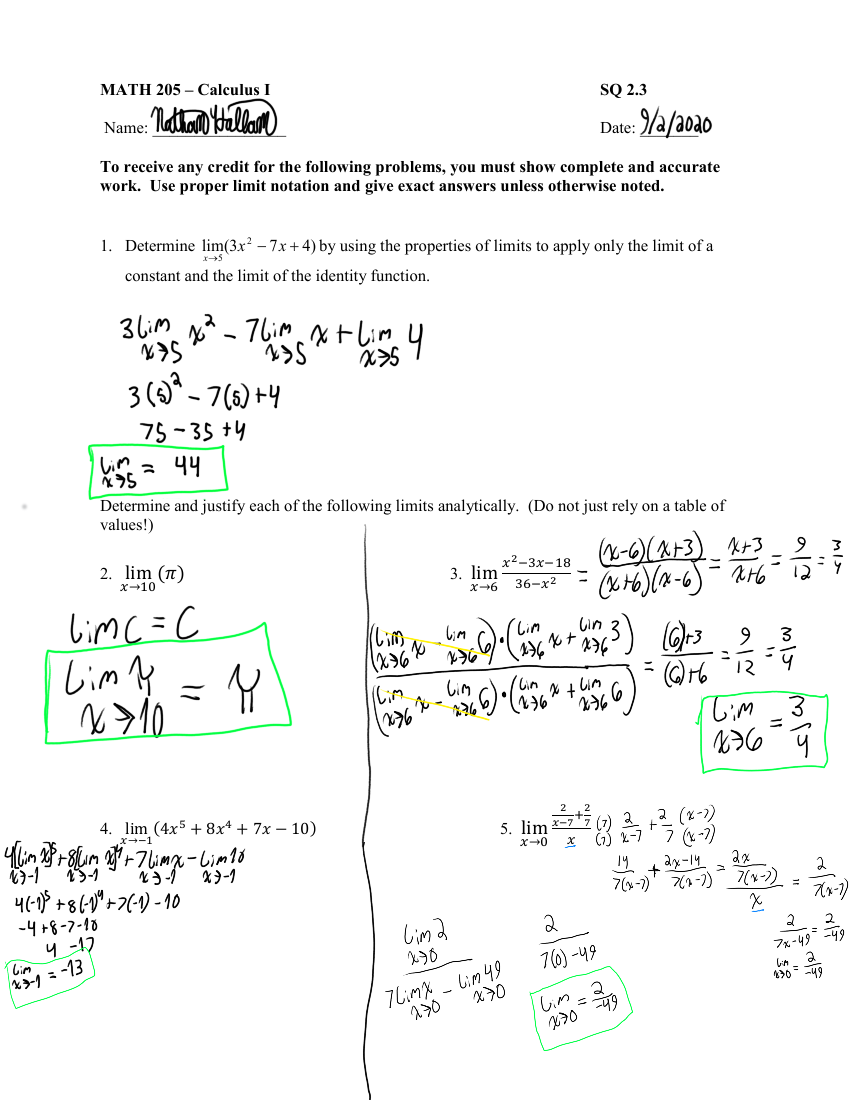 MATH 205 – Calculus I SQ 2.3
Name: Nathan Hallam Date: 9/2/2020
To receive any credit for the following problems, you must show complete and accurate
work. Use proper limit notation and give exact answers unless otherwise noted.
1. Determine lim x→5 (3x² − 7x + 4) by using the properties of limits to apply only the limit of a
constant and the limit of the identity function.
3 lim x→5 x² − 7 lim x→5 x + lim x→5 4
3(5)² − 7(5) + 4
75 − 35 + 4
lim x→5 = 44
Determine and justify each of the following limits analytically. (Do not just rely on a table of
values!)
2. lim x→10 (π)
lim c = c
lim x→10 π = π
3. lim x→6 (x²−3x−18)/(36−x²) = ((x-6)(x+3))/((x+6)(x-6)) = (x+3)/(x+6) = 9/12 = 3/4
((lim x→6 x − lim x→6 6)·(lim x→6 x + lim x→6 3))/((lim x→6 x − lim x→6 6)·(lim x→6 x + lim x→6 6)) = ((6)+3)/((6)+6) = 9/12 = 3/4
lim x→6 = 3/4
4. lim x→−1 (4x⁵ + 8x⁴ + 7x − 10)
4[lim x→-1 x]⁵ + 8[lim x→-1 x]⁴ + 7 lim x→-1 x − lim x→-1 10
4(-1)⁵ + 8(-1)⁴ + 7(-1) - 10
-4 + 8 - 7 - 10
4 - 17
lim x→-1 = -13
5. lim x→0 (2/(x−7) + 2/7)/x (7)/(7) 2/(x-7) + 2/7 (x-7)/(x-7)
14/7(x-7) + (2x-14)/7(x-7) = (2x/7(x-7))/x = 2/7(x-7)
2/(7x-49) = 2/-49
lim x→0 = 2/-49
(lim x→0 2)/(7 lim x→0 x − lim x→0 49) 2/(7(0)-49)
lim x→0 = 2/-49